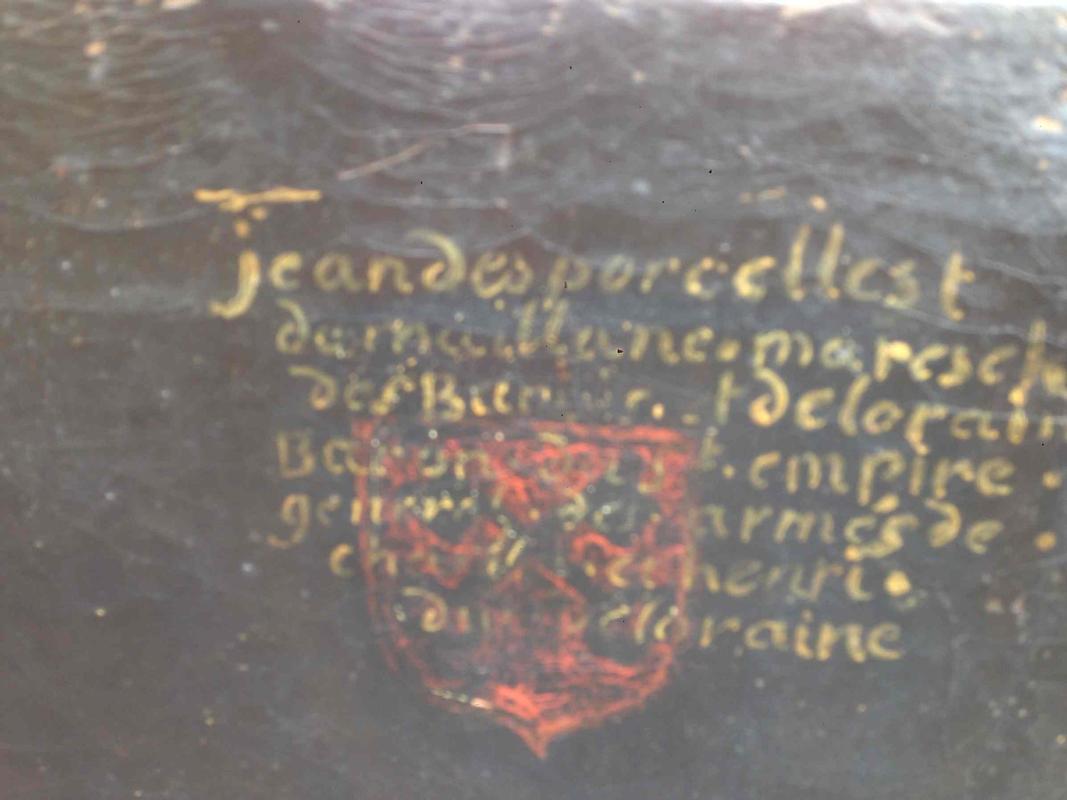 jean des porcellest
de maillane. mareschal
de Barrois. et de lorain
Baron du st. empire.
general. des armés de.
charll et henri.
du de loraine